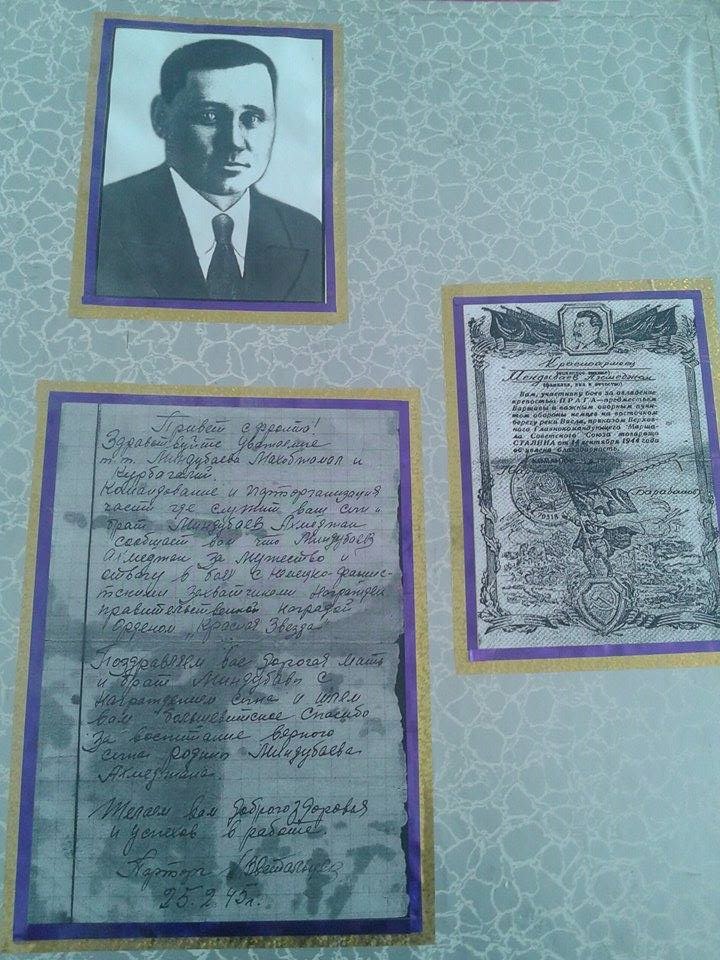 Привет с фронта!
Здравствуйте уважаемые
т.т. Миндубаева Махобжомал и
Курбагалий.
Командование и Парторганизация
части где служит ваш сын и
брат Миндубаев Ахмеджан
сообщает вам что Миндубаев
Ахмеджан за мужество и
отвагу в бою с немецко-фашист-
тскими захватчиками награжден
правительственной наградой
Орденом „Красная Звезда"
Поздравляем вас дорогая мать
и брат Миндубаевы с
награждением сына и шлем
вам большевитское спасибо
за воспитание верного
сына родины Миндубаева
Ахмеджана.
Желаем вам доброго здоровья
и успехов в работе.
Парторг
25.2.45г.
Красноармеец
Миндыбаев Ахмеджан
(фамилия, имя и отчество)
Вам, участнику боев за овладение
крепостью ПРАГА—предместьем
Варшавы и важным опорным пунк-
том обороны немцев на восточном
берегу реки Висла, приказом Верхов-
ного Главнокомандующего Марша-
ла Советского Союза товарища
СТАЛИНА от 14 сентября 1944 года
объявлена благодарность.
Барабанов